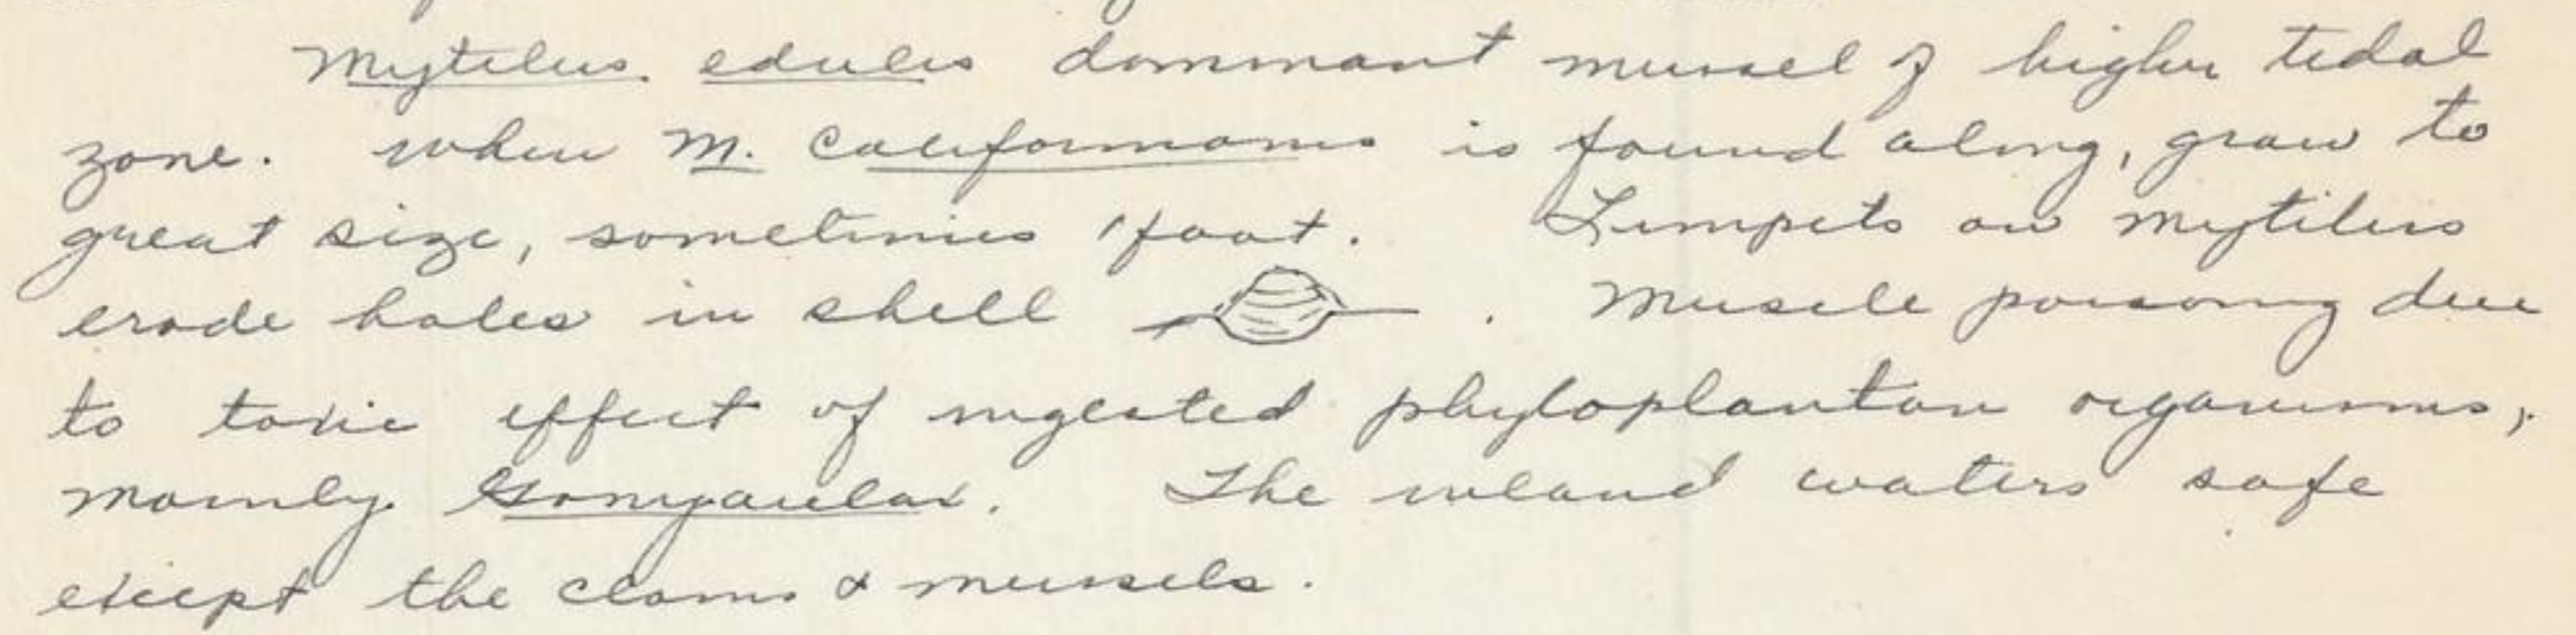 Mytilus edulis dominant mussel of higher tidal
zone. When M. Californianus is found along, grow to
great size, sometimes 1 foot. Limpets on Mytilus
erode holes in shell . Muscle poisoning due
to toxic effect of ingested phytoplanton organisms,
mainly Gonyaulax. The inland waters safe
except the clams & mussels.